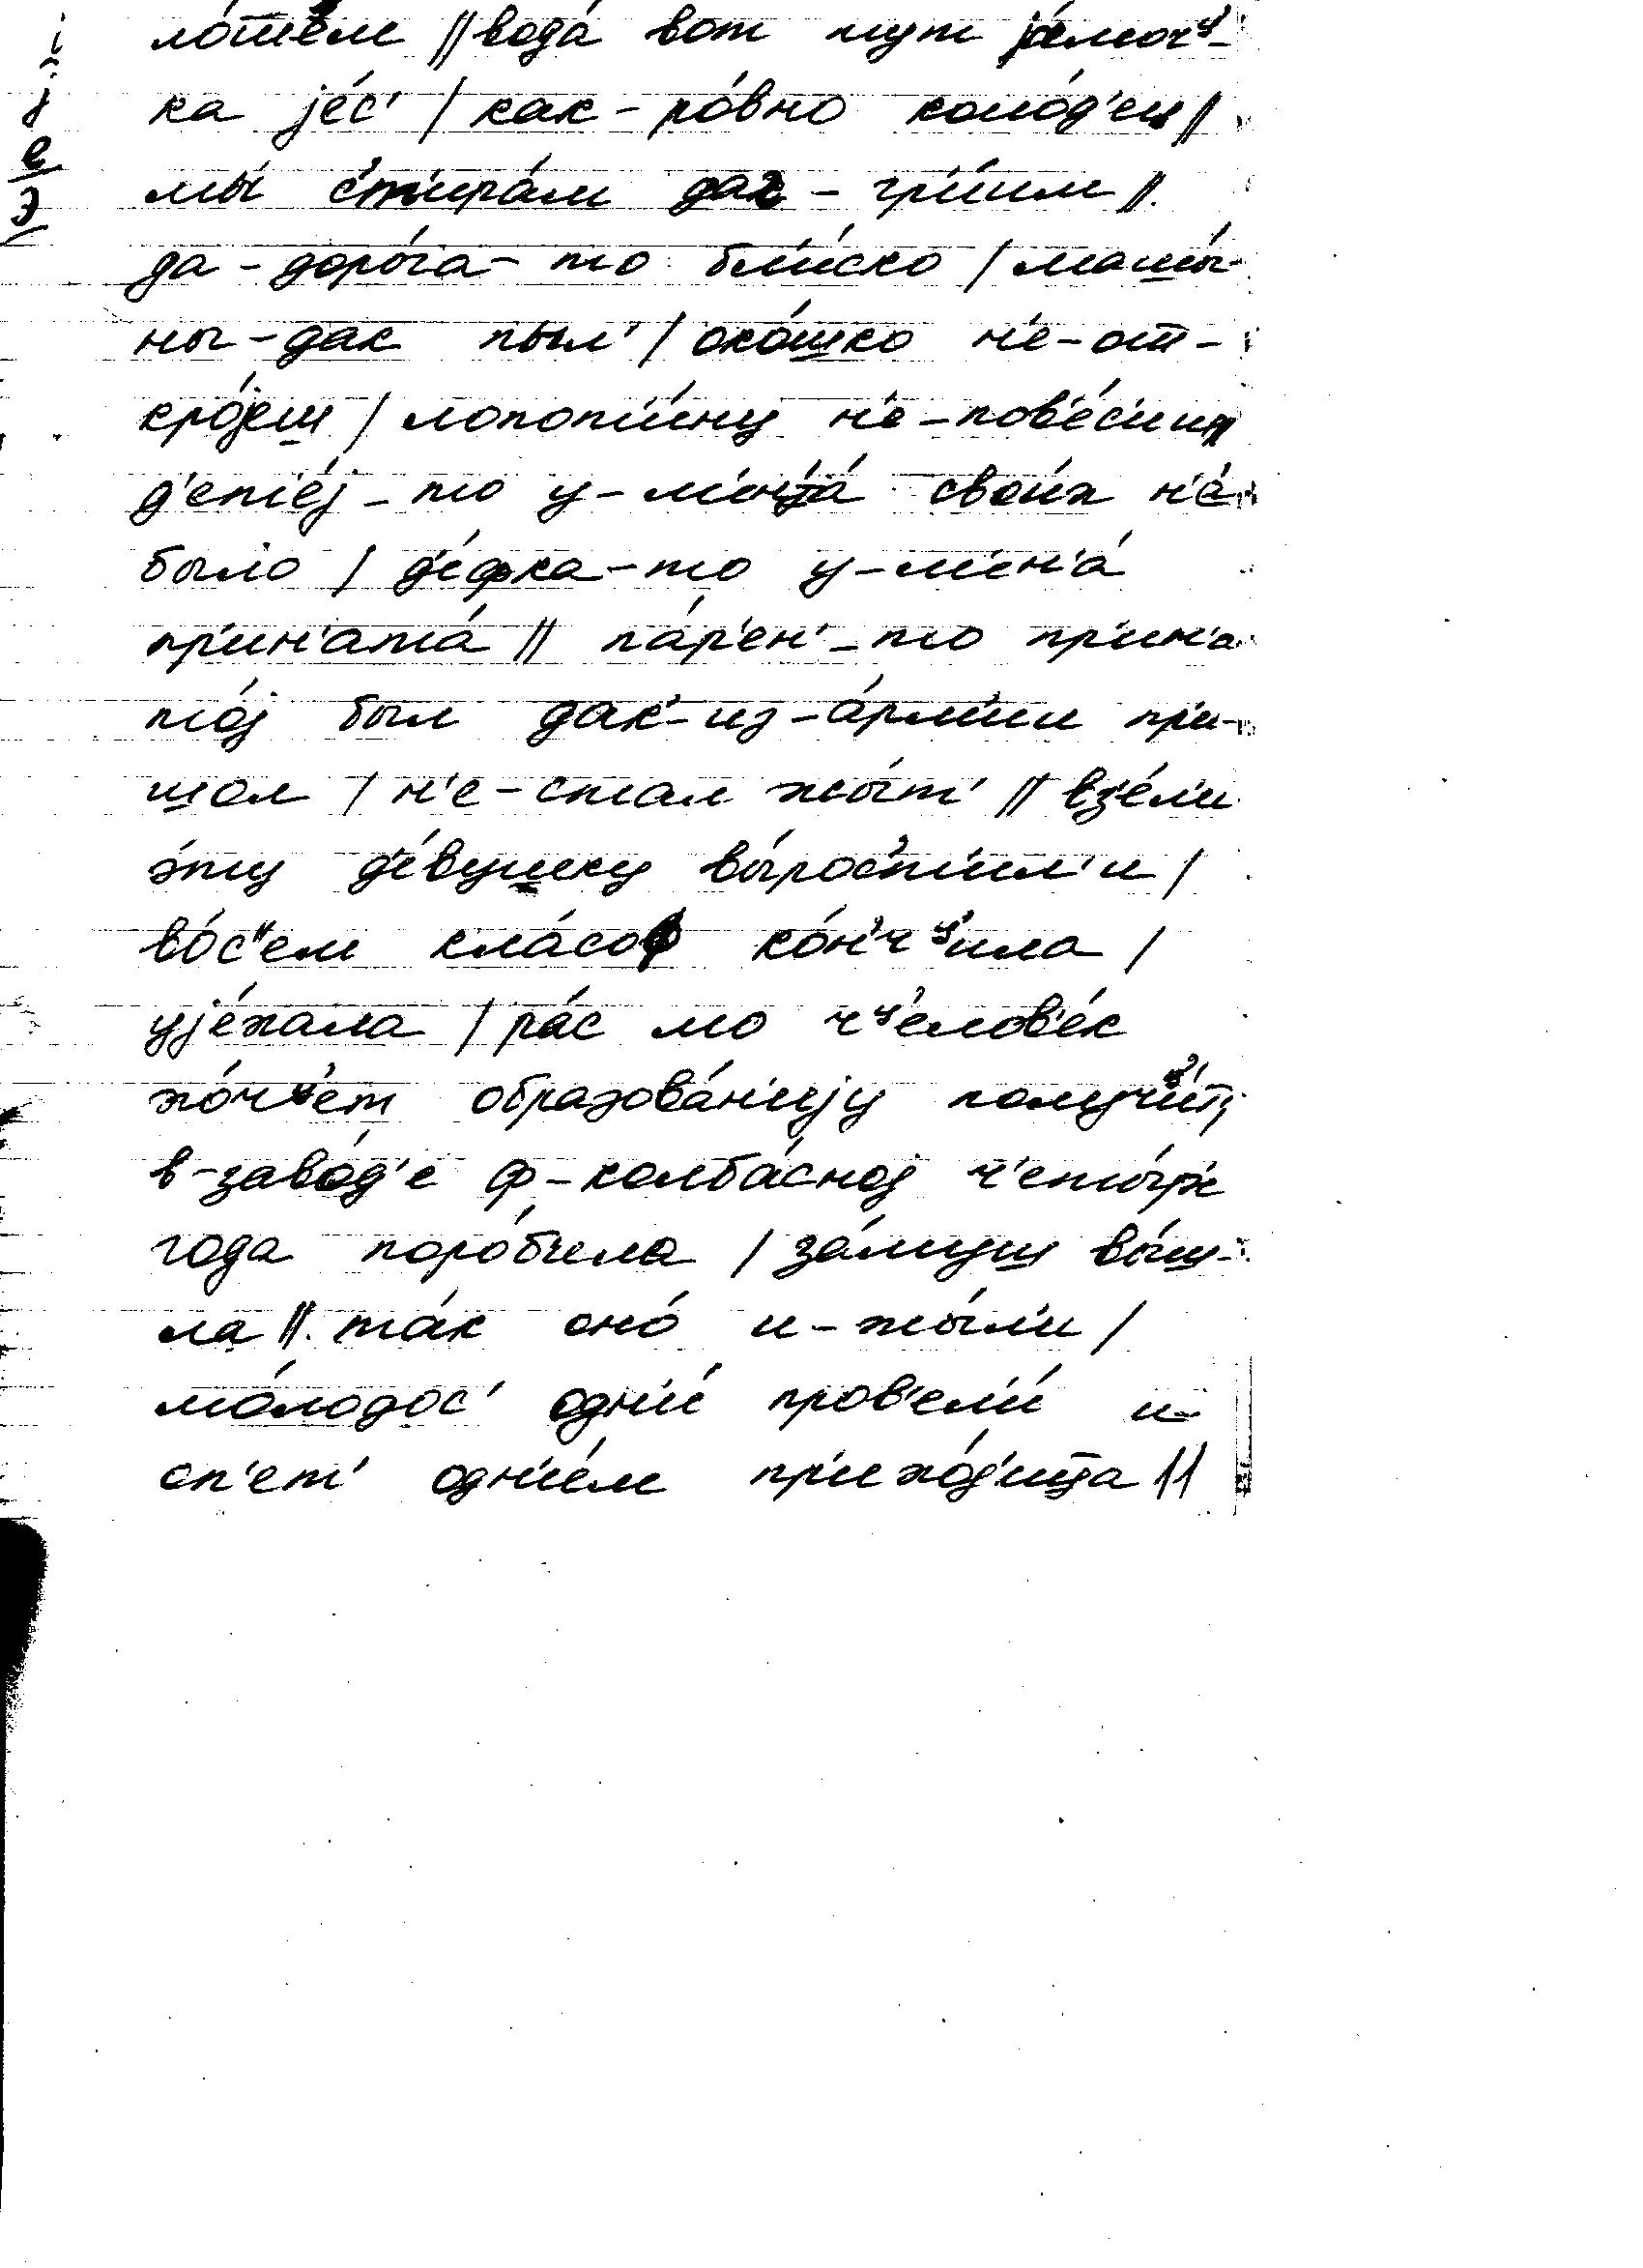 ло́тѐм || вода́ вот тут jа́моч<sup>ц</sup>-
ка jе́с' / как-ро́вно коло́д'ец ||
мы́ с'т'ира́м дак-гр'и́им ||
да-доро́га-то бл'и́ско / машы́-
ны-дак пыл' / око́шко н'е-от-
кро́jеш / лопот'и́ну н'е-пов'е́сиш ||
д'ет'е́j-то у-м'ен'а́ своих н'е́
было / д'е́фка-то у-м'ен'а́
пр'ин'ата́ || па́р'ен'-то пр'ин'а
то́j был дак-из-а́рм'ии пр'и-
шол / н'е-стал жы́т' || вз'е́л'и
э́ту д'е́вушку вы́рос'т'ил'и /
во́с'ем кла́соф ко́н'ч<sup>ц'</sup>ила /
уjе́хала / ра́с мо ч<sup>ц'</sup>елов'е́к
хо́ч<sup>ц'</sup>ет образова́н'иjу получ<sup>ц'</sup>и́т'
в-заво́д'е ф-колба́сноj ч'еты́р'е
года поро́б'ила / за́муш вы́ш-
ла || та́к оно́ и-жы́л'и /
мо́лодос' одн'и́ пров'ел'и́ и-
оп'ет' одн'и́м пр'ихо́д'ица ||